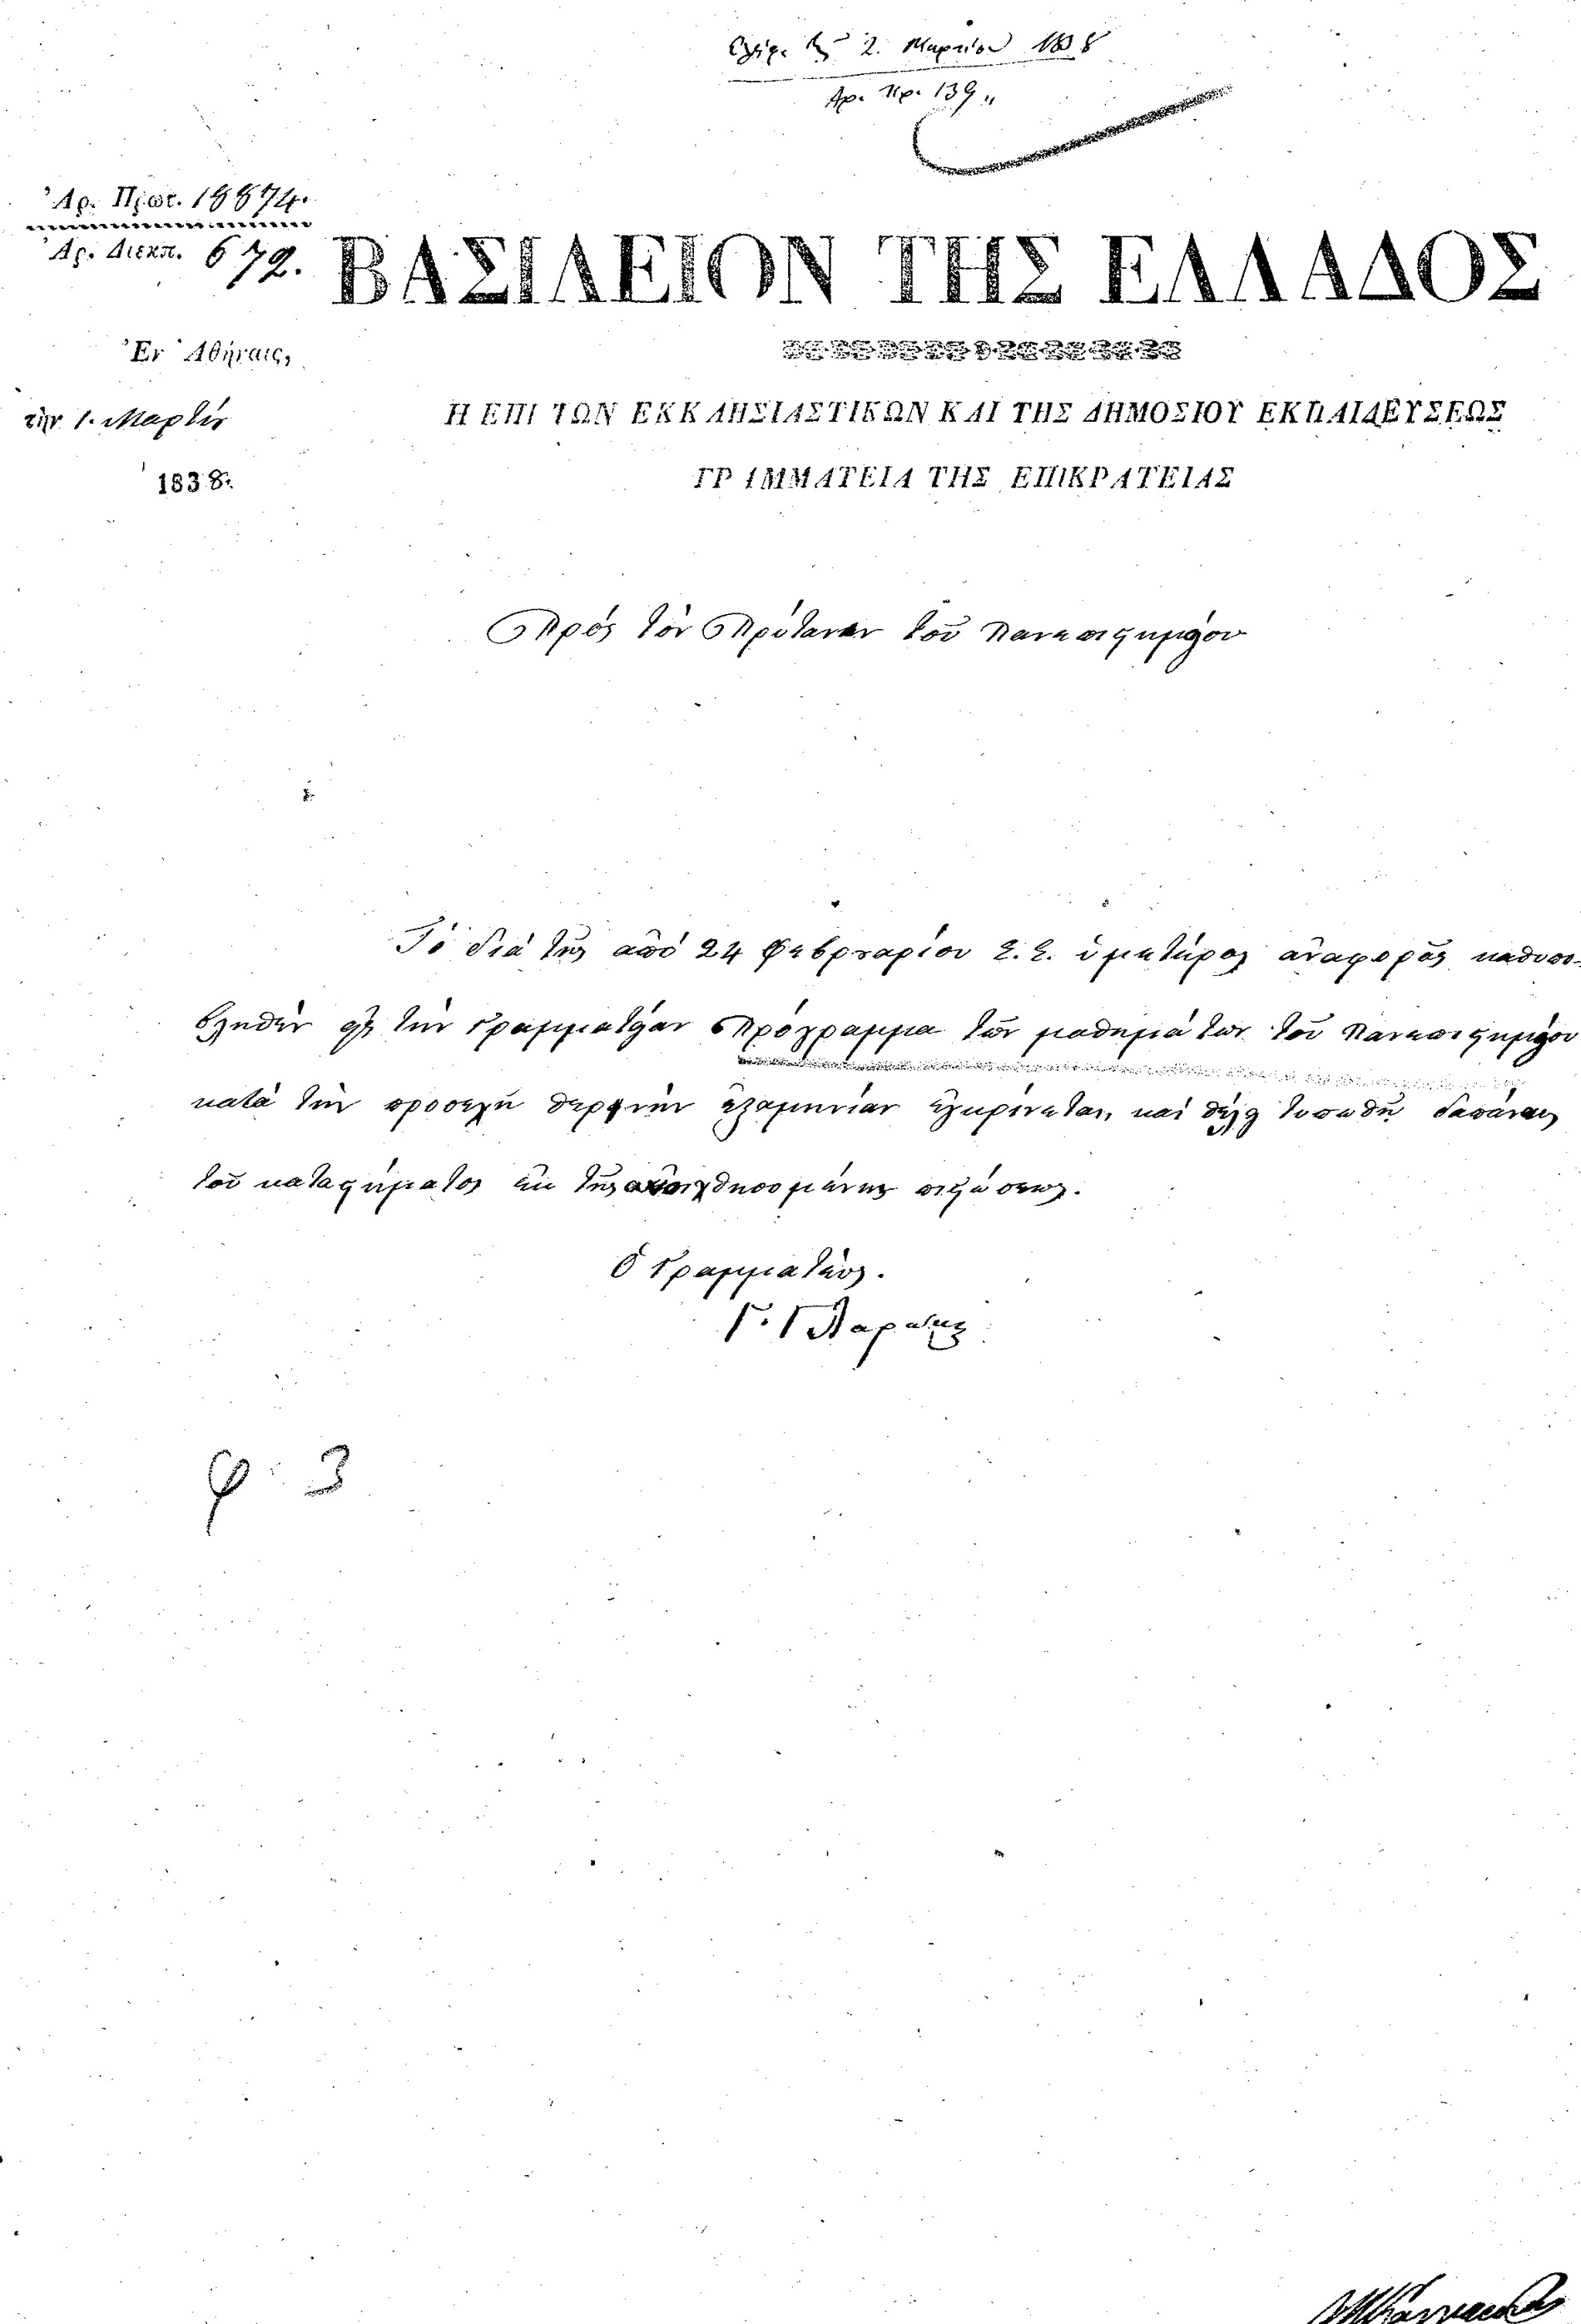 Ἐλήφ. τῇ 2. Μαρτίου 1838
Αρ. Πρ. 139
Ἀρ. Πρωτ. 18874.
Ἀρ. Διεκπ. 672.
ΒΑΣΙΛΕΙΟΝ ΤΗΣ ΕΛΛΑΔΟΣ
Ἐν Ἀθήναις,
τὴν 1. Μαρτίου
1838.
Η ΕΠΙ ΤΩΝ ΕΚΚΛΗΣΙΑΣΤΙΚΩΝ ΚΑΙ ΤΗΣ ΔΗΜΟΣΙΟΥ ΕΚΠΑΙΔΕΥΣΕΩΣ
ΓΡΑΜΜΑΤΕΙΑ ΤΗΣ ΕΠΙΚΡΑΤΕΙΑΣ
Πρὸς τὸν Πρύτανιν τοῦ Πανεπιστημίου
Τὸ διὰ τῆς ἀπὸ 24 Φεβρουαρίου ἐ. ἔ. ὑμετέρας ἀναφορᾶς καθυπο-
βληθὲν εἰς τὴν Γραμματείαν Πρόγραμμα τῶν μαθημάτων τοῦ Πανεπιστημίου
κατὰ τὴν προσεχῆ θερινὴν ἑξαμηνίαν ἐγκρίνεται, καὶ θέλει τυπωθῆ δαπάναις
τοῦ καταστήματος ἐκ τῆς ἀνοιχθησομένης πιστώσεως.
Ὁ Γραμματεύς.
Γ. Γλαράκης
φ. 3